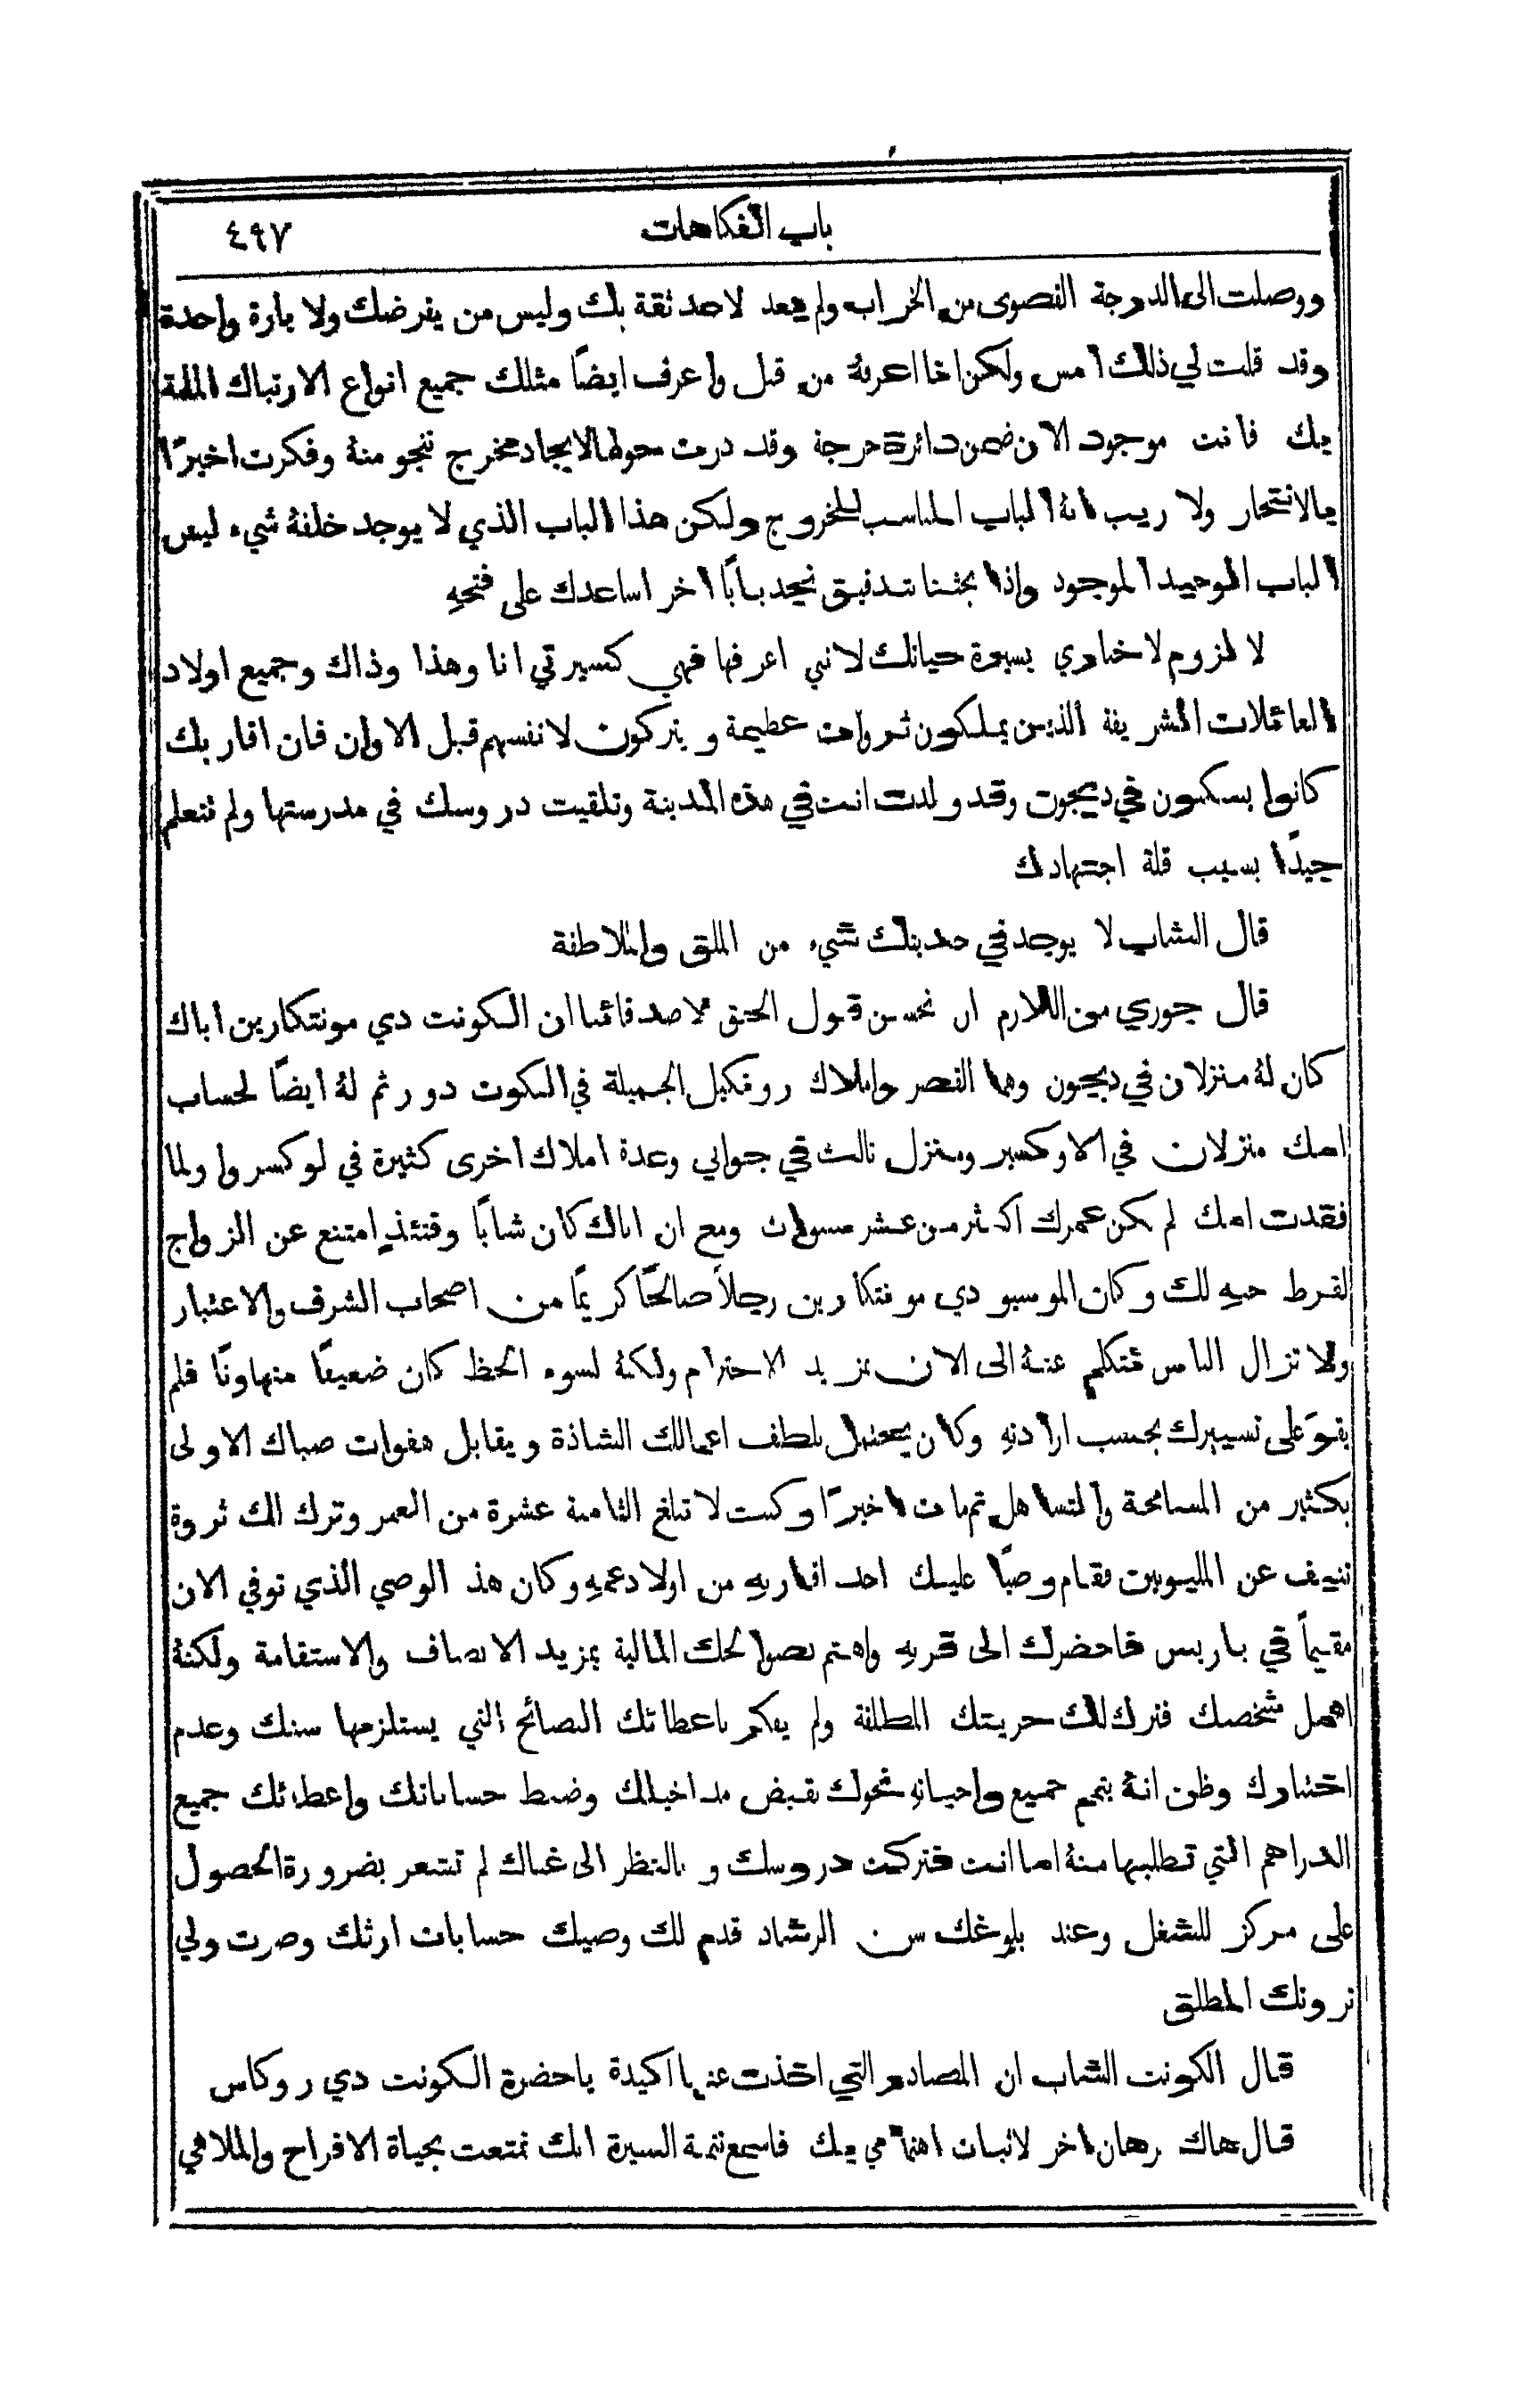 باب الفكاهات ٤٩٧
ووصلت الى الدرجة القصوى من الخراب ولم يعد لاحد ثقة بك وليس من يقرضك ولا بارة واحدة
وقد قلت لي ذلك امس ولكن انا اعرفه من قبل واعرف ايضًا مثلك جميع انواع الارتباك الملمة
بك فانت موجود الان ضمن دائرة حرجة وقد درت حولها لايجاد مخرج تنجو منه وفكرت اخيرًا
بالانتحار ولا ريب انه الباب المناسب للخروج ولكن هذا الباب الذي لا يوجد خلفه شيء ليس
الباب الوحيد الموجود واذا بحثنا بتدقيق نجد بابًا اخر اساعدك على فتحهِ
لا لزوم لاخباري بسيرة حياتك لانني اعرفها فهي كسيرتي انا وهذا وذاك وجميع اولاد
العائلات الشريفة الذين يملكون ثروات عظيمة ويتركون لانفسهم قبل الاوان فان اقاربك
كانوا يسكنون في ديجون وقد ولدت انت في هذه المدينة وتلقيت دروسك في مدرستها ولم تتعلم
جيدًا بسبب قلة اجتهادك
قال الشاب لا يوجد في حديثك شيء من الملق والملاطفة
قال جوري من اللازم ان نحسن قول الحق لاصدقائنا ان الكونت دي مونتكارين اباك
كان له منزلان في ديجون وهما القصر واملاك رونكيل الجميلة في الكوت دور ثم له ايضًا لحساب
امك منزلان في الاوكسير ومنزل ثالث في جوابي وعدة املاك اخرى كثيرة في لوكسروا ولما
فقدت امك لم يكن عمرك اكثر من عشر سنوات ومع ان اباك كان شابًا وقتئذٍ امتنع عن الزواج
لفرط حبهِ لك وكان الموسيو دي مونتكارين رجلاً صالحًا كريمًا من اصحاب الشرف والاعتبار
ولا تزال الناس تتكلم عنه الى الان بمزيد الاحترام ولكنه لسوء الحظ كان ضعيفًا متهاونًا فلم
يقوَ على تسييرك بحسب ارادتهِ وكان يحتمل بلطف اعمالك الشاذة ويقابل هفوات صباك الاولى
بكثير من المسامحة والتساهل ثم مات اخيرًا وكنت لا تبلغ الثامنة عشرة من العمر وترك لك ثروة
تنيف عن المليونين فقام وصيًا عليك احد اقاربهِ من اولاد عمهِ وكان هذ الوصي الذي توفي الان
مقيمًا في باريس فاحضرك الى قربهِ واهتم بصوالحك المالية بمزيد الانصاف والاستقامة ولكنه
اهمل شخصك فترك لك حريتك المطلقة ولم يفكر باعطائك النصائح التي يستلزمها سنك وعدم
اختبارك وظن انه يتمم جميع واجباتهِ نحوك بقبض مداخيلك وضبط حساباتك واعطائك جميع
الدراهم التي تطلبها منه اما انت فتركت دروسك وبالنظر الى غناك لم تشعر بضرورة الحصول
على مركز للشغل وعند بلوغك سن الرشاد قدم لك وصيك حسابات ارثك وصرت ولي
ثروتك المطلق
قال الكونت الشاب ان المصادر التي اخذت عنها اكيدة ياحضرة الكونت دي روكاس
قال هاك برهان اخر لاثبات اهتمامي بك فاسمع تتمة السيرة انك تمتعت بحياة الافراح والملاهي